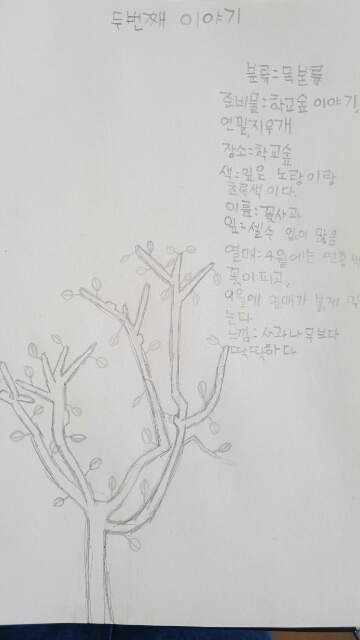 두번째 이야기
분류=목본류
준비물=학교숲 이야기,
연필,지우개
장소=학교숲
색=잎은 노랑이랑
초록색이다.
이름=꽃사과
잎=셀수 없이 많음
열매=4월에는 연홍색
꽃이피고,
9월에 열매가 붉게 익
는다
느낌=사과나무보다
딱딱하다